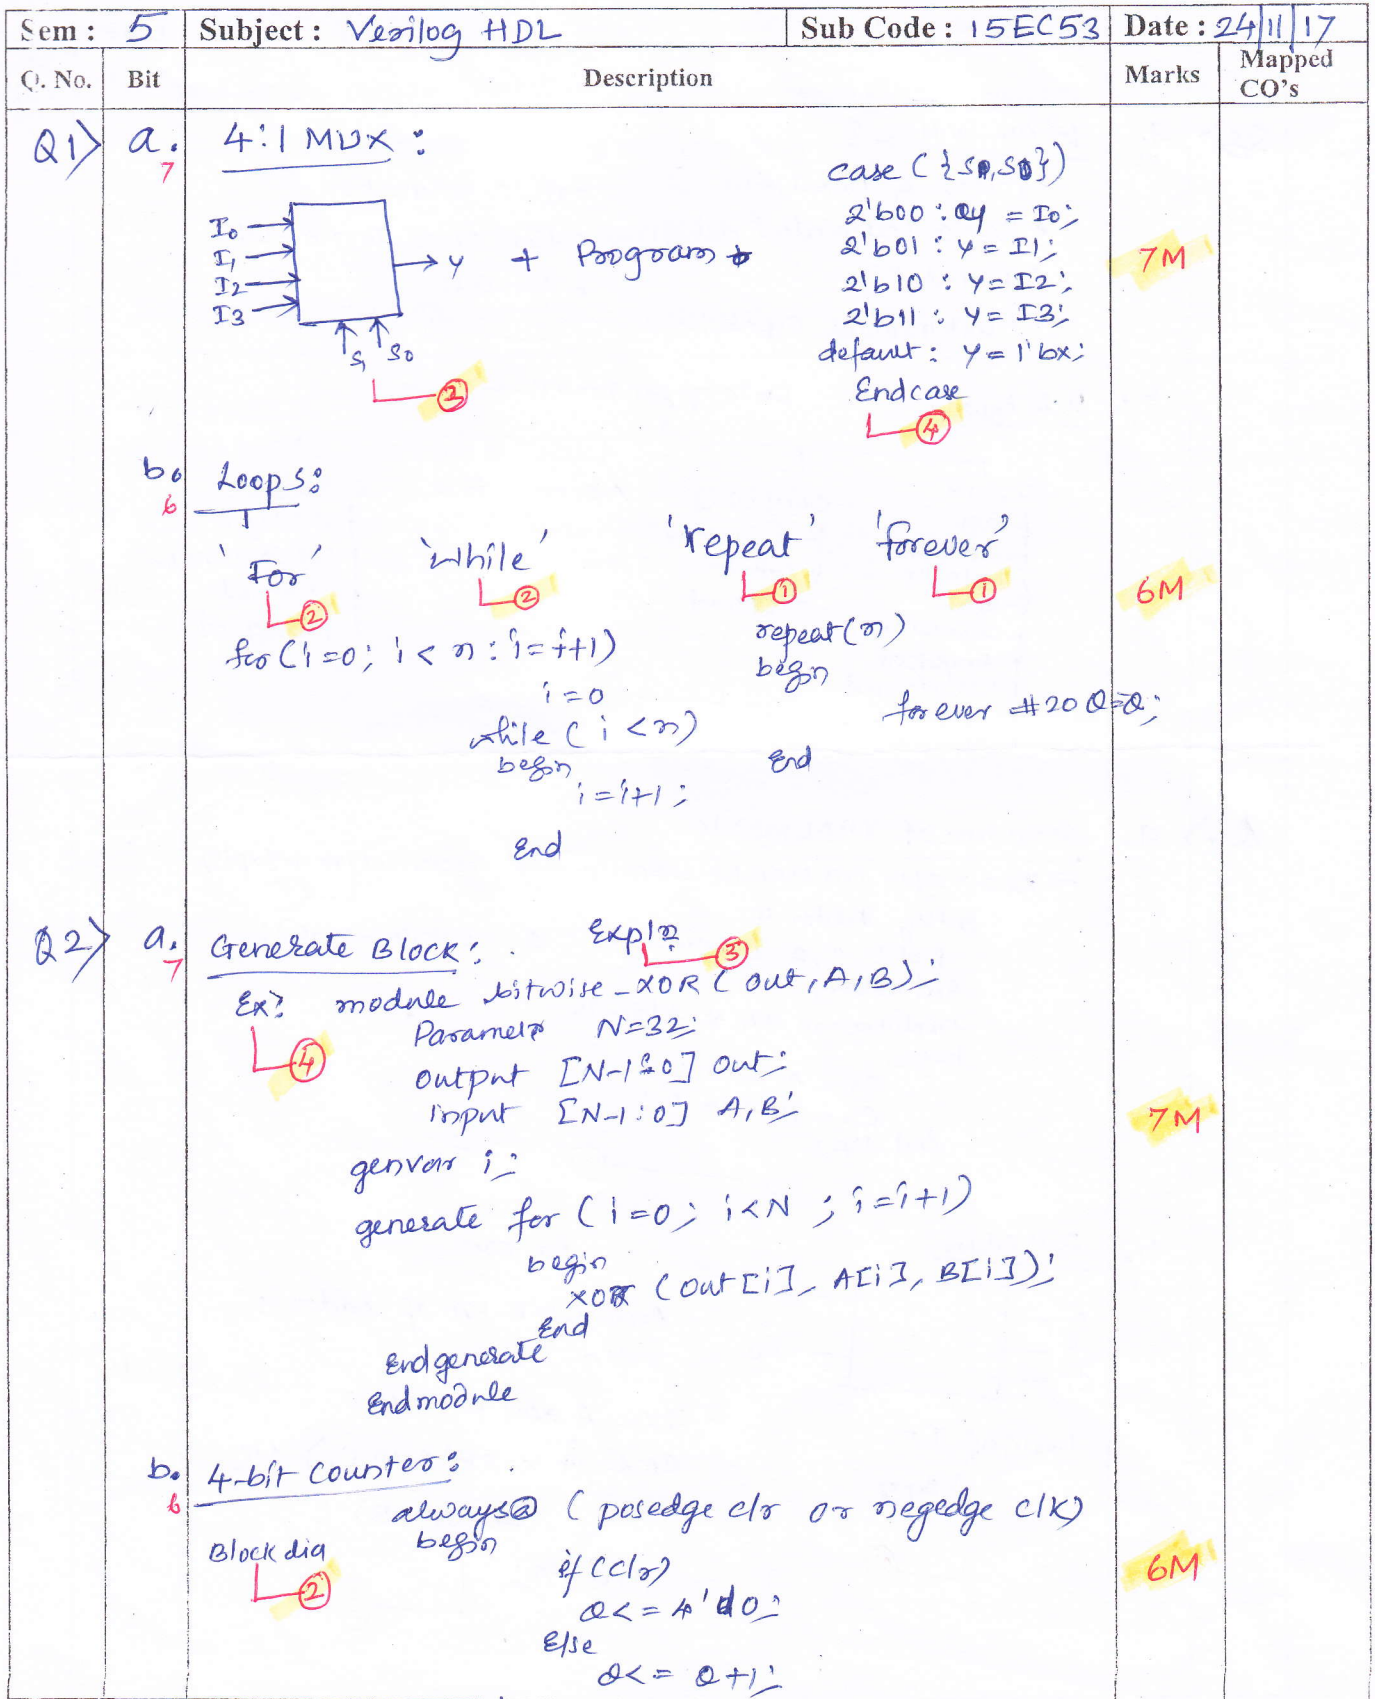 Sem : 5 Subject : Verilog HDL Sub Code : 15EC53 Date : 24/11/17
Q. No. Bit Description Marks Mapped CO's
Q1> a. 4:1 MUX :
7
I0
I1
I2
I3
y + Program
S1 S0
3
case ({S1,S0})
2'b00 : y = I0;
2'b01 : y = I1;
2'b10 : y = I2;
2'b11 : y = I3;
default : y = 1'bx;
Endcase
4
7M
b. Loops:
6
'For' 'while' 'repeat' 'forever'
2 2 1 1
6M
for (i=0; i < n : i = i+1)
i = 0
while ( i < n)
begin
i = i+1 ;
End
repeat (n)
begin
End
forever #20 Q=Q;
Q2> a. Generate Block : Expln
7
3
Ex: module bitwise_XOR ( out, A, B) ;
4
Parameter N=32;
output [N-1:0] out;
input [N-1:0] A, B;
7M
genvar i ;
generate for (i=0; i<N ; i=i+1)
begin
XOR (out[i], A[i], B[i]);
End
End generate
End module
b. 4-bit Counter:
6
always@ ( posedge clr or negedge clk)
begin
Block dia
2
if (clr)
Q <= 4'd0;
Else
Q <= Q+1;
6M